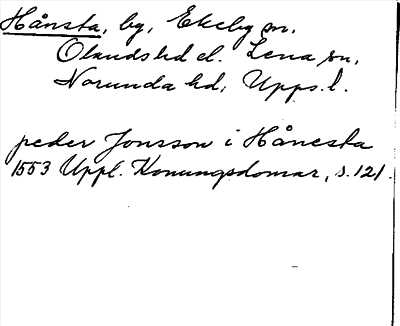 Hånsta, by, Ekeby sn,
Olands hd el. Lena sn,
Norunda hd, Upps. l.
peder Jonsson i Hånesta
1553 Uppl. Konungsdomar, s. 121.